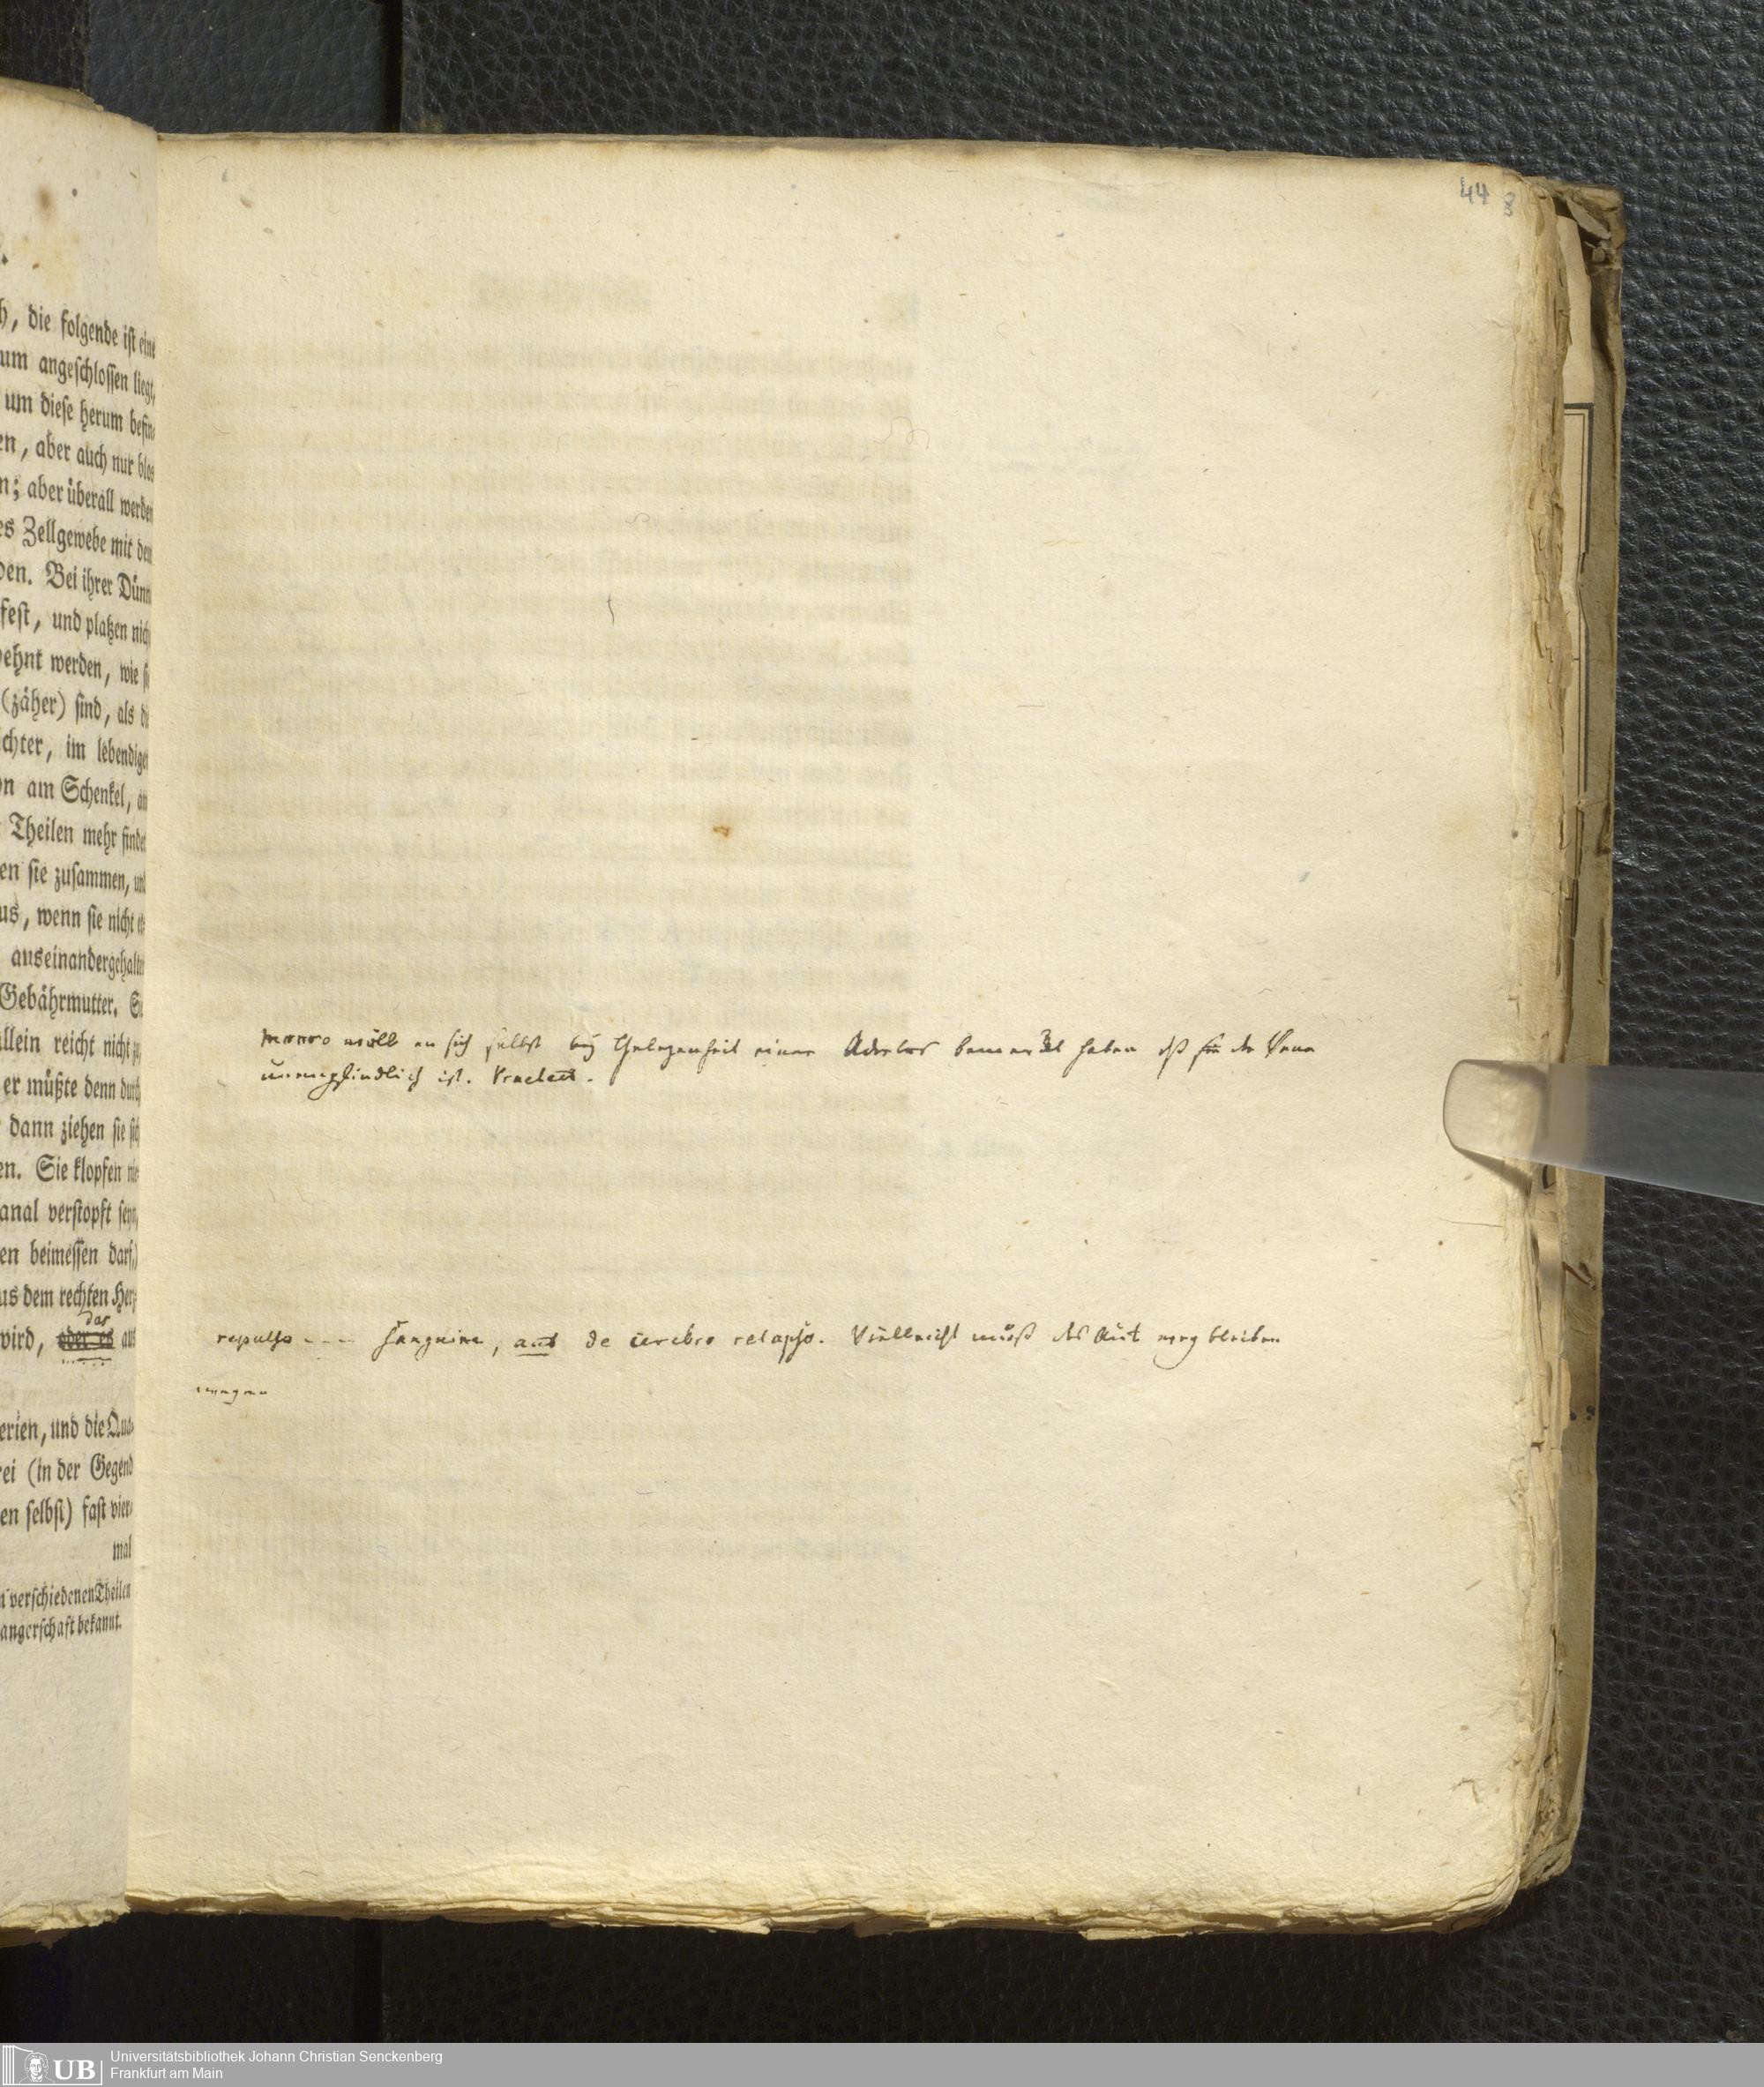 44 8
h, die folgende ist eine
um angeschlossen liegt,
um diese herum befin-
en, aber auch nur blos
n; aber überall werden
es Zellgewebe mit den
den. Bei ihrer Dünn
fest, und platzen nich
ehnt werden, wie si
(zäher) sind, als di
chter, im lebendigen
on am Schenkel, an
Theilen mehr finde
en sie zusammen, und
us, wenn sie nicht et-
auseinandergehalten
Gebährmutter. S
llein reicht nicht zu,
er müßte denn durch
dann ziehen sie sich
en. Sie klopfen nie-
anal verstopft seyn,
en beimessen darf,)
us dem rechten Herz
das
wird, oder es aus
erien, und die Qua-
rei (in der Gegend
en selbst) fast vier-
mal
n verschiedenen Theilen
angerschaft bekannt.
Monro will an sich selbst bey Gelegenheit einer Aderlas bemerkt haben daß die Vena
unempfindlich ist. Praelect.
repulso ---- sanguine, aut de cerebro relapso. Vielleicht muß das aut weg bleiben
UB
Universitätsbibliothek Johann Christian Senckenberg
Frankfurt am Main